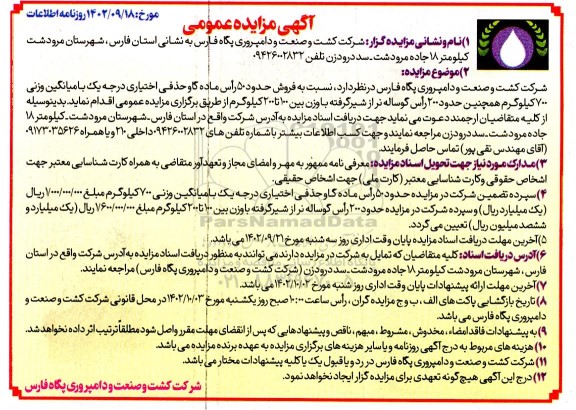 مورخ: ۱۴۰۲/۰۹/۱۸ روزنامه اطلاعات
آگهی مزایده عمومی
۱) نام و نشانی مزایده گزار: شرکت کشت و صنعت و دامپروری پگاه فارس به نشانی استان فارس، شهرستان مرودشت
کیلومتر ۱۸ جاده مرودشت ـ سد درودزن تلفن ۰۹۴۲۶۰۰۲۸۳۲
۲) موضوع مزایده:
شرکت کشت و صنعت و دامپروری پگاه فارس در نظر دارد، نسبت به فروش حدود ۵۰ رأس ماده گاو حذفی اختیاری درجه یک با میانگین وزنی
۷۰۰ کیلوگرم همچنین حدود ۲۰۰ رأس گوساله نر از شیر گرفته با وزن بین ۱۰۰ تا ۲۰۰ کیلوگرم از طریق برگزاری مزایده عمومی اقدام نماید. بدینوسیله
از کلیه متقاضیان ارجمند دعوت می نماید جهت دریافت اسناد مزایده به آدرس شرکت واقع در استان فارس ـ شهرستان مرودشت ـ کیلومتر ۱۸
جاده مرودشت ـ سد درودزن مراجعه نمایند و جهت کسب اطلاعات بیشتر با شماره تلفن های ۰۹۴۲۶۰۰۲۸۳۲ داخلی ۲۱۰ و یا همراه ۰۹۱۷۳۰۳۵۶۲۶
(آقای مهندس نقی پور) تماس حاصل فرمایند.
۳) مدارک مورد نیاز جهت تحویل اسناد مزایده: معرفی نامه ممهور به مهر و امضای مجاز و تعهدآور متقاضی به همراه کارت شناسایی معتبر جهت
اشخاص حقوقی و کارت شناسایی معتبر (کارت ملی) جهت اشخاص حقیقی.
۴) سپرده تضمین شرکت در مزایده حدود ۵۰ رأس ماده گاو حذفی اختیاری درجه یک با میانگین وزنی ۷۰۰ کیلوگرم مبلغ ۱/۰۰۰/۰۰۰/۰۰۰ ریال
(یک میلیارد ریال) و سپرده شرکت در مزایده حدود ۲۰۰ رأس گوساله نر از شیر گرفته با وزن بین ۱۰۰ تا ۲۰۰ کیلوگرم مبلغ ۱/۶۰۰/۰۰۰/۰۰۰ ریال (یک میلیارد و
ششصد میلیون ریال) تعیین می گردد.
۵) آخرین مهلت دریافت اسناد مزایده پایان وقت اداری روز سه شنبه مورخ ۱۴۰۲/۰۹/۲۱ می باشد.
۶) آدرس دریافت اسناد: کلیه متقاضیان که تمایل به شرکت در مزایده دارند می توانند به منظور دریافت اسناد مزایده به آدرس شرکت واقع در استان
فارس، شهرستان مرودشت کیلومتر ۱۸ جاده مرودشت ـ سد درودزن (شرکت کشت و صنعت و دامپروری پگاه فارس) مراجعه نمایند.
۷) آخرین مهلت ارائه پیشنهادات پایان وقت اداری روز شنبه مورخ ۱۴۰۲/۱۰/۰۲ می باشد.
۸) تاریخ بازگشایی پاکت های الف، ب و ج مزایده گران، رأس ساعت ۱۰:۰۰ صبح روز یکشنبه مورخ ۱۴۰۲/۱۰/۰۳ در محل قانونی شرکت کشت و صنعت و
دامپروری پگاه فارس می باشد.
۹) به پیشنهادات فاقد امضاء، مخدوش، مشروط، مبهم، ناقص و پیشنهادهایی که پس از انقضای مهلت مقرر واصل شود مطلقاً ترتیب اثر داده نخواهد شد.
۱۰) هزینه های مربوط به درج آگهی روزنامه و یا سایر هزینه های برگزاری مزایده به عهده برنده مزایده می باشد.
۱۱) شرکت کشت و صنعت و دامپروری پگاه فارس در رد و یا قبول یک یا کلیه پیشنهادات مختار می باشد.
۱۲) درج این آگهی هیچ گونه تعهدی برای مزایده گزار ایجاد نخواهد نمود.
شرکت کشت و صنعت و دامپروری پگاه فارس
ParsNamadData